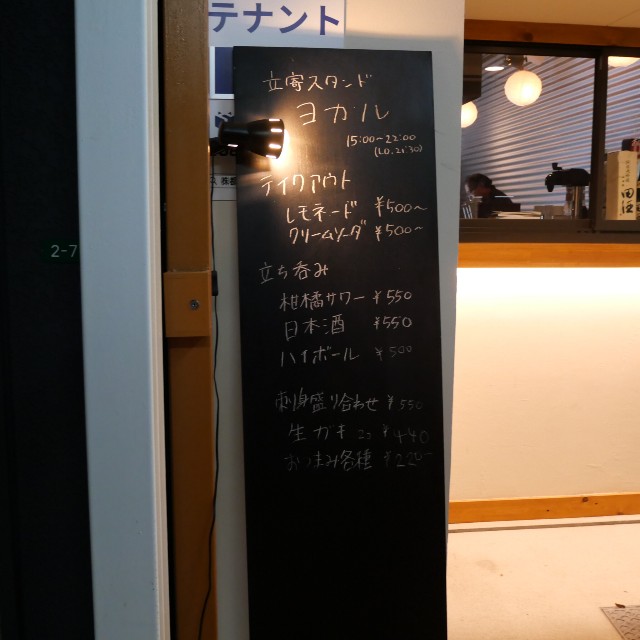 テナント
立寄スタンド
ヨガル
15:00~22:00
(L.O. 21:30)
テイクアウト
レモネード ¥500~
クリームソーダ ¥500~
立ち呑み
柑橘サワー ¥550
日本酒 ¥550
ハイボール ¥500
刺身盛り合わせ ¥550
生ガキ 2コ ¥440
おつまみ各種 ¥220~
2-7